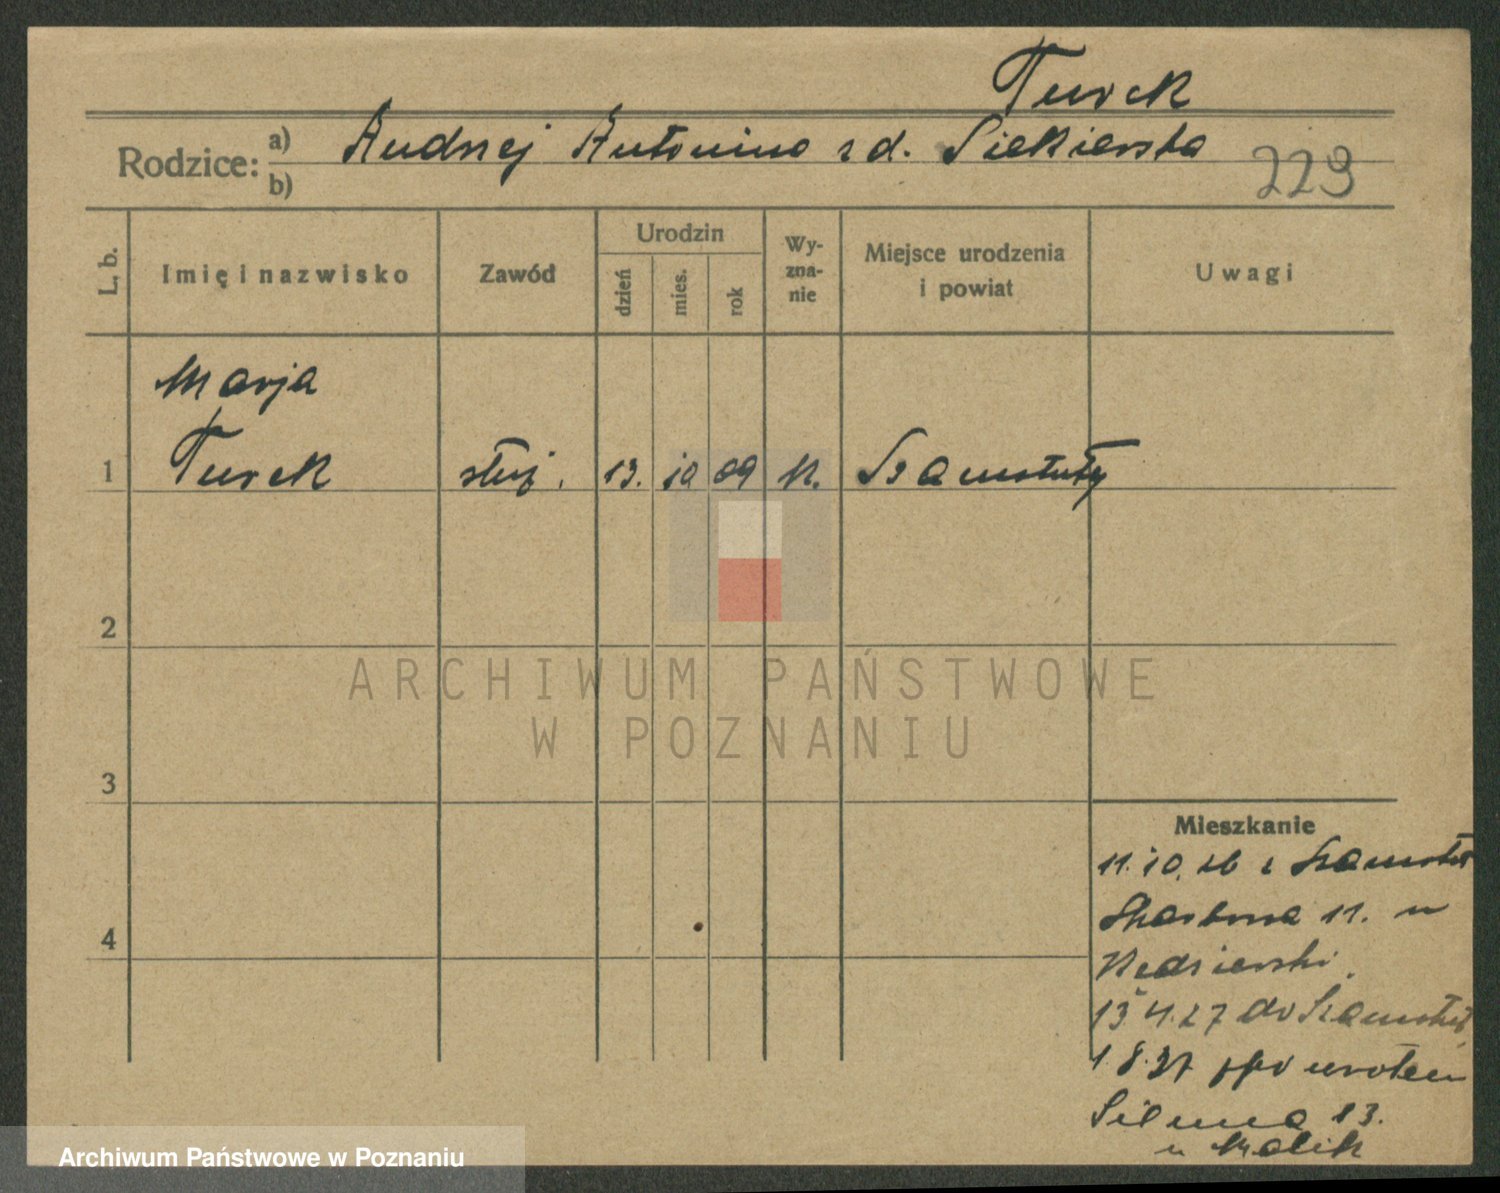 Turek
Rodzice:
a) Andrzej Antonina z d. Siekierska
b)
229
L. b.
Imię i nazwisko
Zawód
Urodzin
dzień
mies.
rok
Wy-
zna-
nie
Miejsce urodzenia
i powiat
Uwagi
Marja
1 Turek służ. 13. 10 09 k. Szamotuły
2
3
4
Mieszkanie
11.10.26 z Szamotuł
Skarbowa 11. u
Kędzierski
15 4.27 do Szamotuł
1.8.37
13.
ARCHIWUM PAŃSTWOWE
W POZNANIU
Archiwum Państwowe w Poznaniu